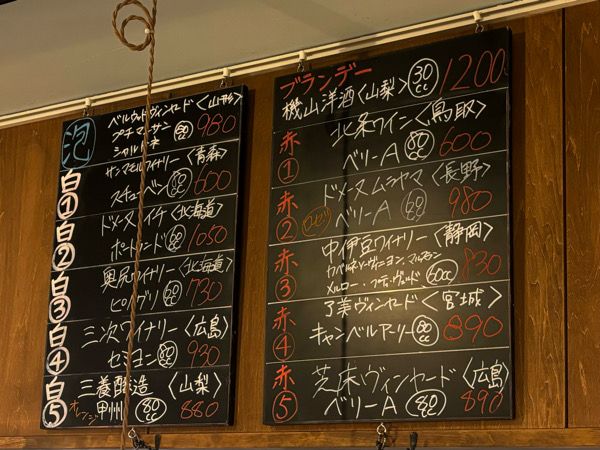 泡
ベルウッドヴィンヤード〈山形〉
プチマンサン
シャルドネ
60cc 980
白①
サンマモルワイナリー〈青森〉
スチューベン 60cc 600
白②
ドメーヌイチ〈北海道〉
ポートランド 60cc 1050
白③
奥尻ワイナリー〈北海道〉
ピノグリ 60cc 730
白④
三次ワイナリー〈広島〉
セミヨン 80cc 930
白⑤
オレンジ
三養醸造〈山梨〉
甲州 80cc 880
ブランデー
機山洋酒〈山梨〉 30cc 1200
赤①
北条ワイン〈鳥取〉
ベリーA 60cc 600
赤②
ドメーヌムラヤマ〈長野〉
ベリーA 60cc 980
赤③
中伊豆ワイナリー〈静岡〉
カベルネ・ソーヴィニヨン、
メルロー・プティ・ヴェルド 60cc 830
赤④
了美ヴィンヤード〈宮城〉
キャンベルアーリー 80cc 890
赤⑤
芝床ヴィンヤード〈広島〉
ベリーA 80cc 890